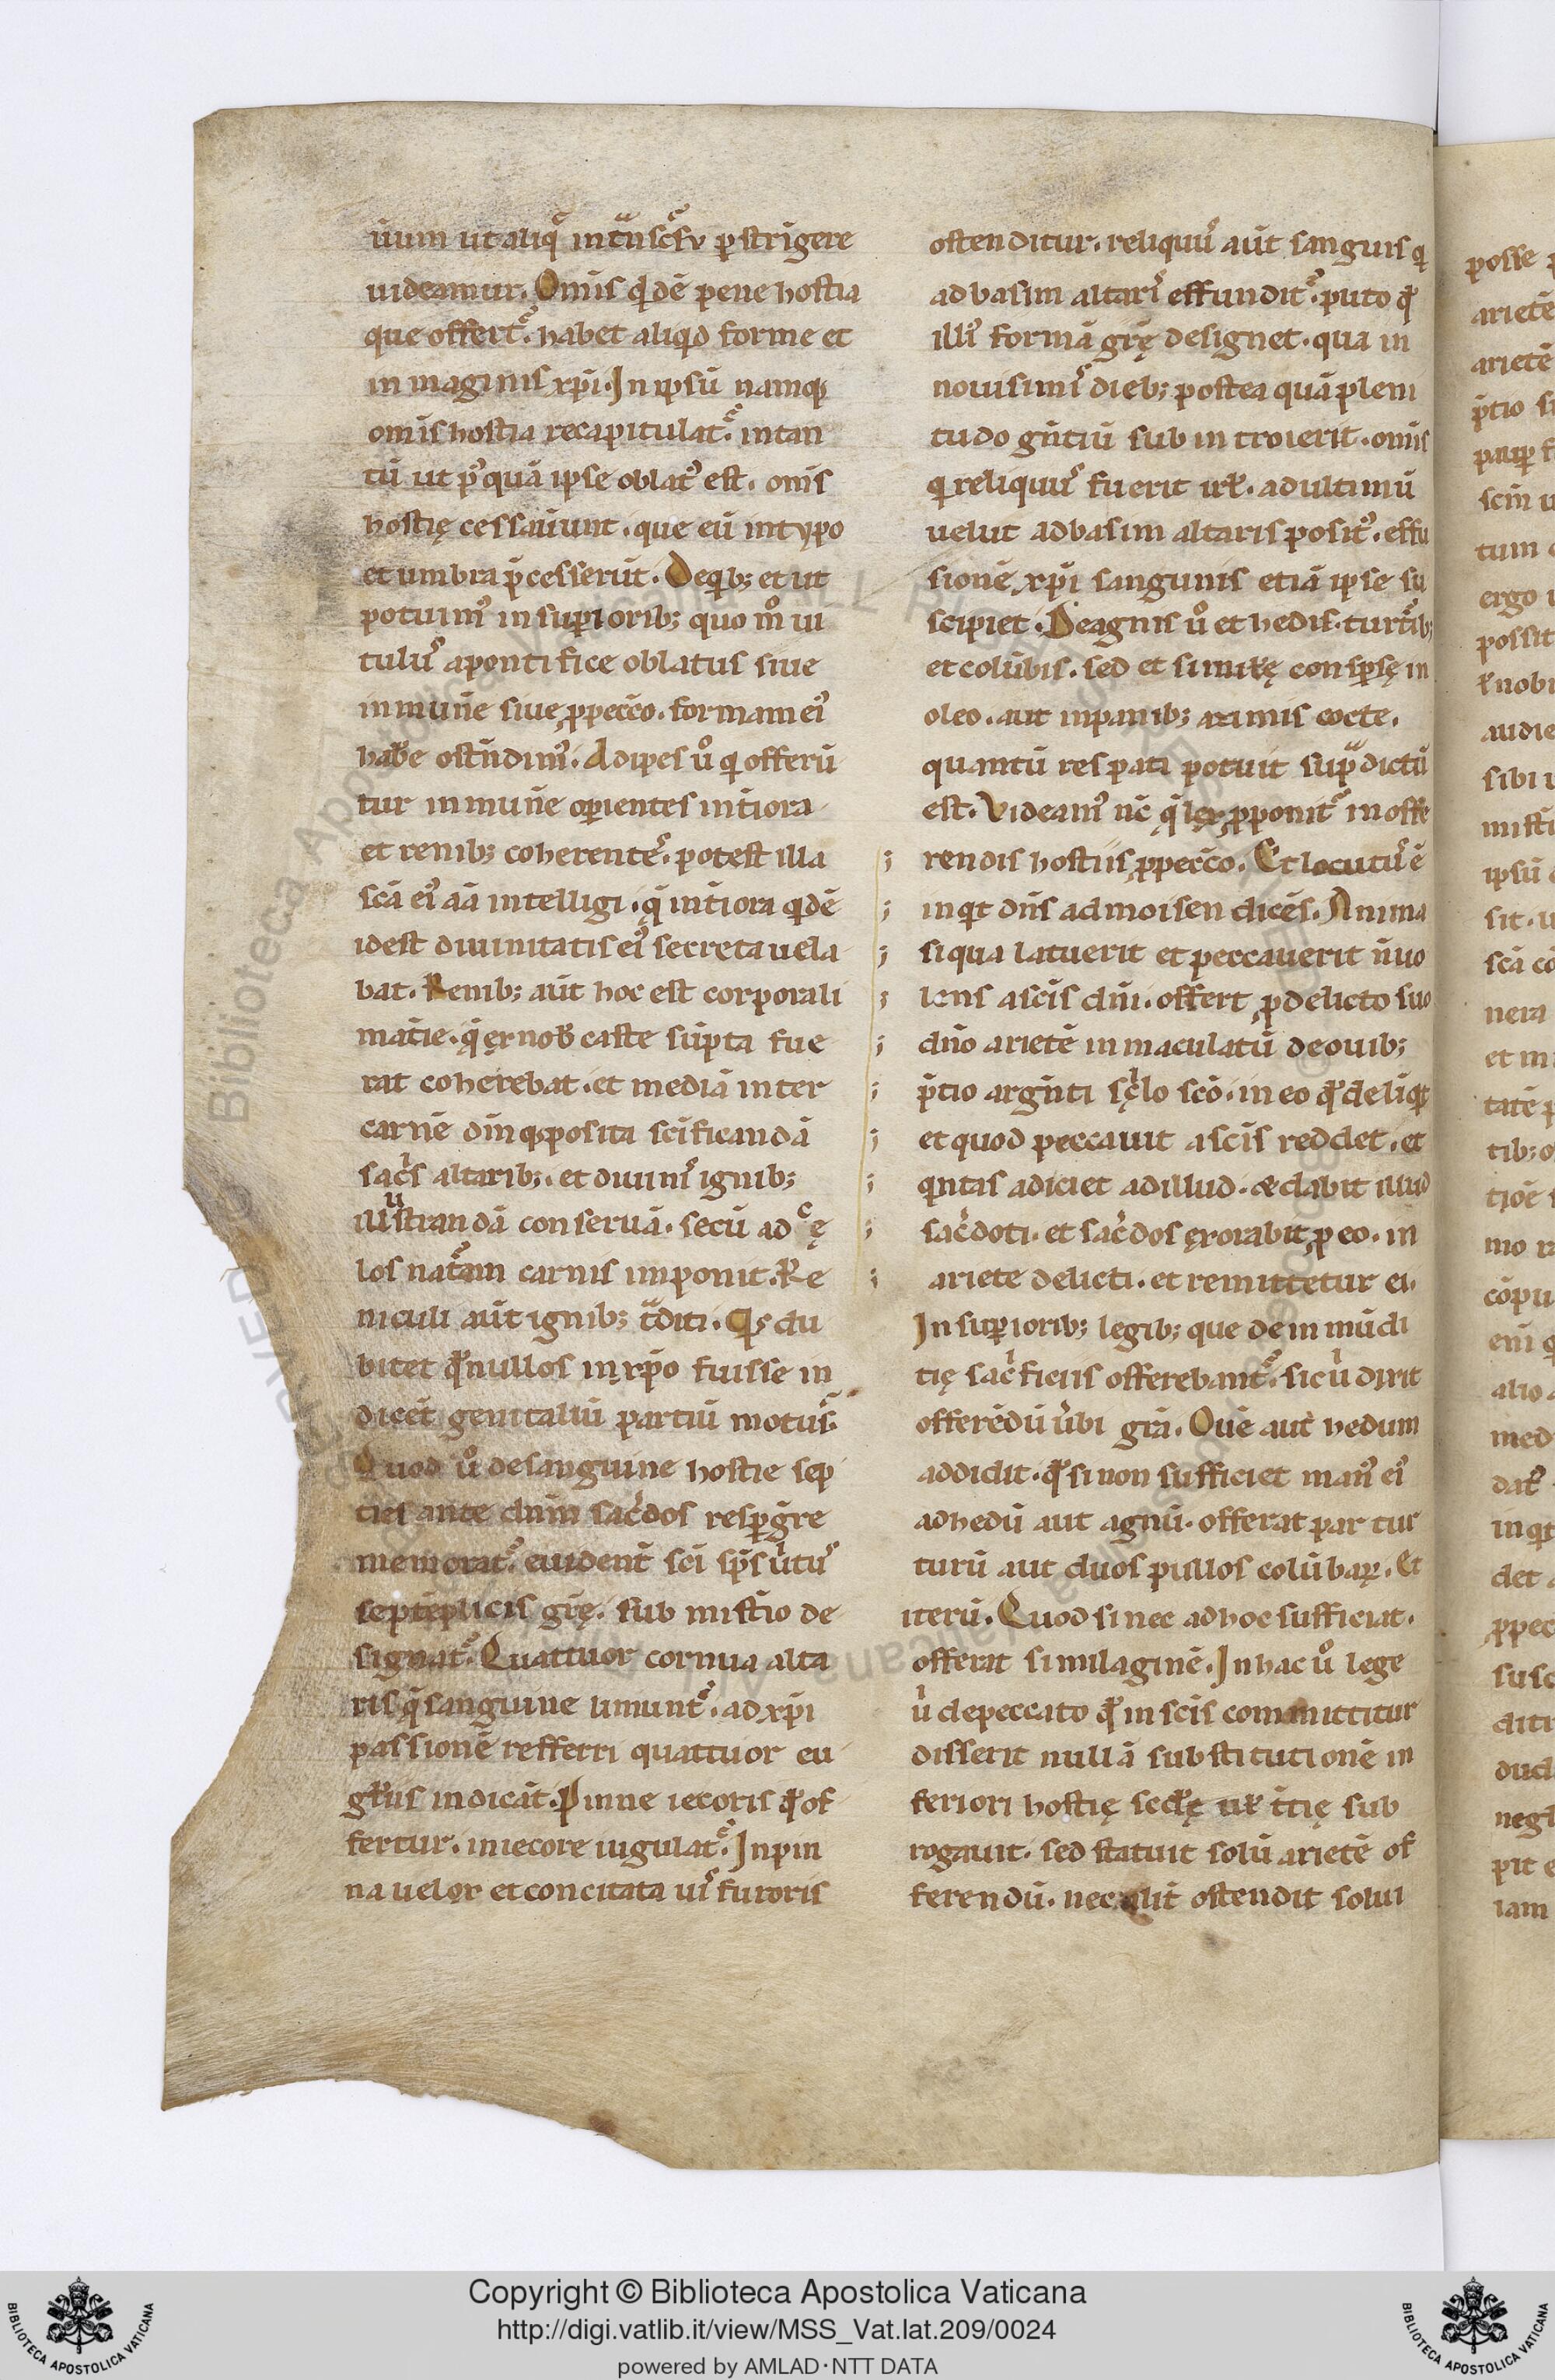 uum ut aliq̃ intͣnscͨsu p̱stri̅gere
uideamur. Om̅is q̇de̅ pene hostia
que offert᷑. habet aliqd forme et
in maginis xp̅i. In ipsu̅ namq;
om̅is hostia recapitulat᷑. intan
tu̅ ut p̱ꝰqua̅ ipse oblatꝰ est. om̅s
hostię cessaue̅unt. que eu̅ intypo
et umbra p̅cesseru̅t. Deqib; et ut
potuimꝰ in sup̱iorib; quo mͦ ui
tulꝰ apontifice oblatus siue
inmun̅e siue, ꝓpecc̅o. formam eiꝰ
hab̅e oste̅dimꝰ. Adipes uͦ qi offeru̅
tur inmun̅e op̱ientes int̅iora
et renib; coherentes. potest illa
sc̅a eiꝰ a̅a intelligi. q̨ int̅iora qde̅
idest diuinitatis eiꝰ secreta uela
bat. Renib; aut̅ hoc est corporali
mat̅ie. q̨ ęx nob̅ caste su̅pta fue
rat coherebat. et media̅ inter
carne̅ dm̅ q; posita sc̅ificanda̅
sac̅s altarib;. et diuinis ignib;
illustranda̅ conserua̅. secu̅ ad cę
los nat᷑am carnis imponit. Re
niculi aut̅ ignib; tͣditi. Qis du
bitet qd̅ nullos inxp̱o fuisse in
dice̅t genitaliu̅ partiu̅ motus.
Quod uͦ desanguine hostie sep
ties ante dn̅m sac̅dos resp̱g̅re
memorat᷑. euident̅ sc̅i sp̅s u̅tutꝰ
septe̅plicis gr̅ę. sub mist̅io de
signat᷑. Quattuor cornua alta
ris q̨ sanguine linunt᷑. ad xp̅i
passione̅ refferri quattuor eu
gl̅ius indica̅t. Pinne iecoris qd̅ of
fertur. iniecore iugulat᷑. In pin
na uelox et concitata uis furoris
ostenditur. reliquus aut̅ sanguis qi
adbasim altaris effundit᷑. puto qd̅
illiꝰ forma̅ gr̅ę designet. qua in
nouisimis dieb; postea qua̅ pleni
tudo ge̅ntiu̅ sub in troierit. om̅is
qi reliquus fuerit isrl̅. adultimu̅
uelut adbasim altaris positꝰ. effu
sione̅ xp̅i sanguinis etia̅ ipse su
scipiet. Deagnis uͦ et hedis. turt᷑ib;
et colu̅bis. sed et similę consp̱sę in
oleo. aut inpanib; azimis cocte.
quantu̅ res pati potuit supͣdictu̅
est. Videamꝰ nc̅ q̨ lęx ꝓponit᷑ inoffe
; rendis hostiis ꝓpecc̅o. Et locutꝰ e̅
; inqit dn̅s admoisen dice̅s. Anima
; siqua latuerit et peccauerit n̅uo
; lens ascis dn̅i. offert ꝓdelicto suo
; dn̅o ariete̅ inmaculatu̅ deouib;
; p̅tio arge̅nti sc̨lo sc̅o. in eo qd̅ deliqit
; et quod peccauit asc̅is reddet. et
; qintas adiciet adillud. & dabit illud
; sac̅doti. et sac̅dos ęxorabit ꝓ eo. in
; ariete delicti. et remittetur ei.
In sup̱iorib; legib; que dein mu̅di
tię sac̅ficiis offerebant᷑. sicu̅ dixit
offere̅du̅ u̅bi gr̅a. Oue̅ aut hedum
addidit. qd̅ si non sufficiet manꝰ eiꝰ
adhedu̅ aut agnu̅. offerat par tur
turu̅ aut duos pullos colu̅baꝝ. Et
iteru̅. Quod si nec adhoc sufficiat.
offerat similagine̅. In hac uͦ lege
u̅ depeccato qd̅ in sc̅is committitur
disserit nulla̅ substitutione̅ in
feriori hostię secd̅ę ur̅ t̅cię sub
rogauit. sed statuit solu̅ ariete̅ of
ferendu̅. nec alit̅ ostendit solui
Copyright © Biblioteca Apostolica Vaticana
http://digi.vatlib.it/view/MSS_Vat.lat.209/0024
powered by AMLAD·NTT DATA
BIBLIOTECA APOSTOLICA VATICANA
BIBLIOTECA APOSTOLICA VATICANA